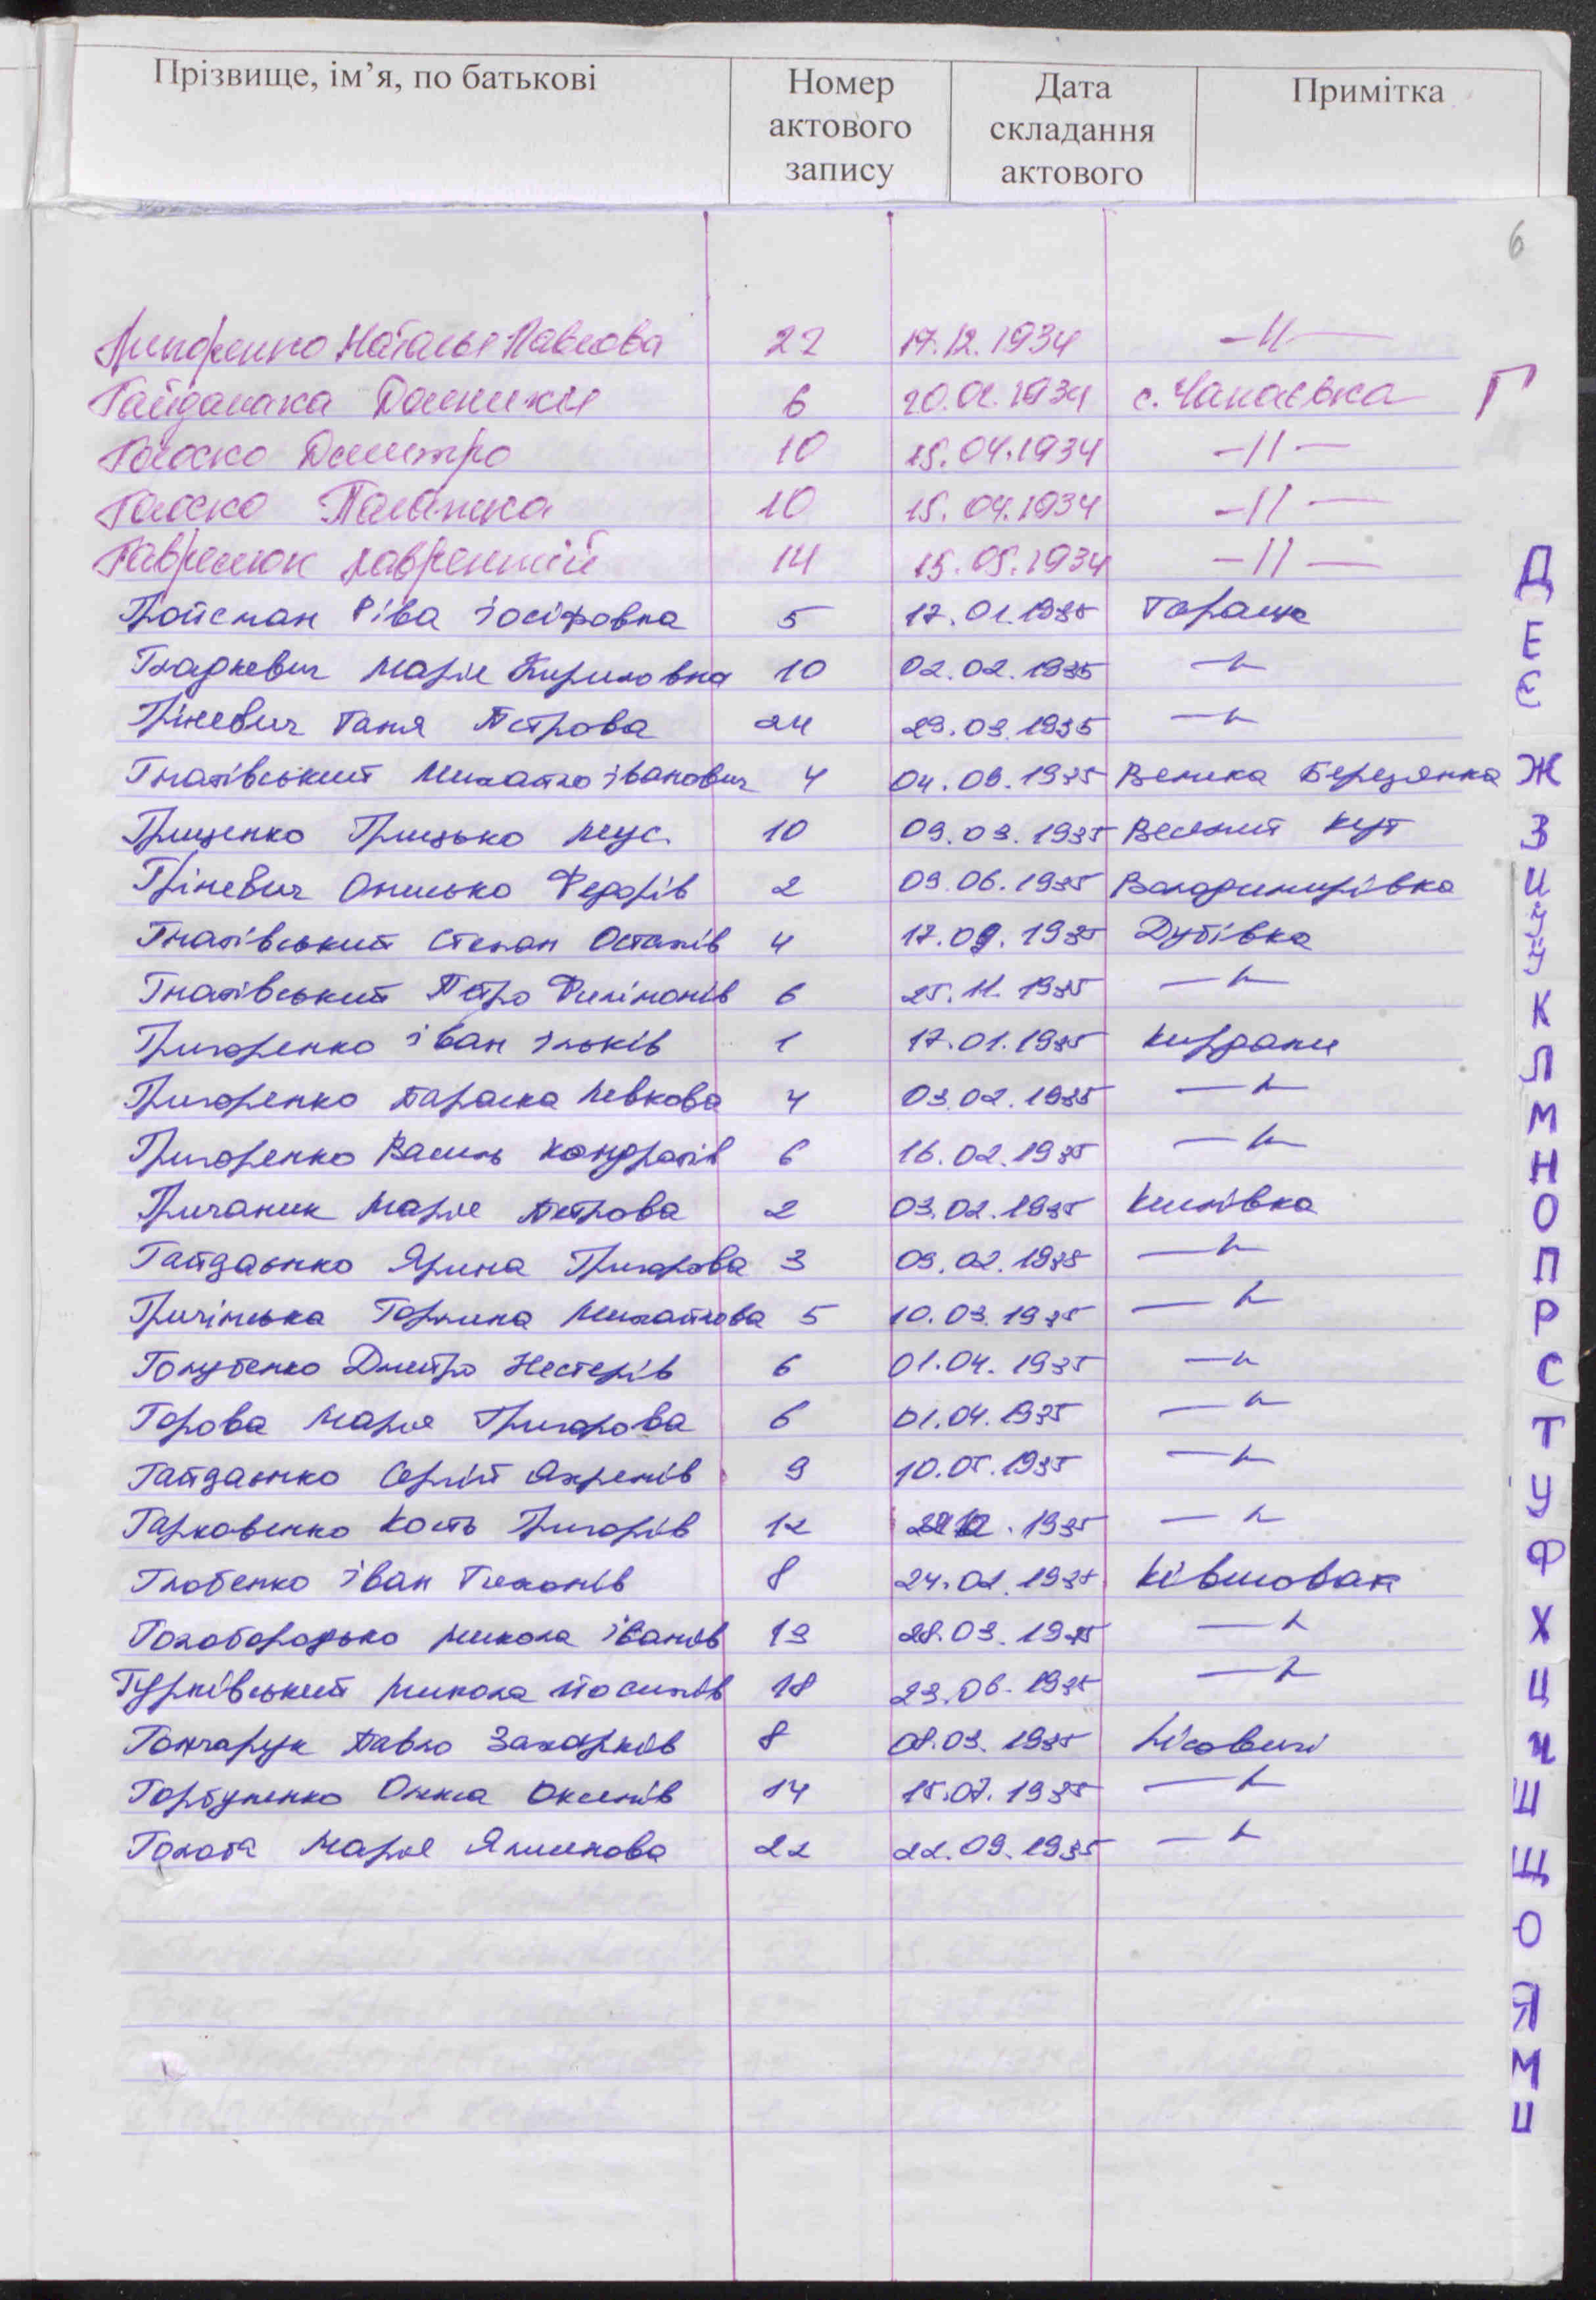 Прізвище, ім’я, по батькові Номер актового запису Дата складання актового Примітка
6
Григоренко Наталія Павлова 22 17.12.1934 -//-
Гайдамака Домникія 6 20.01.1934 с. Чапаєвка
Г
Голоско Дмитро 10 15.04.1934 -//-
Голоско Палажка 10 15.04.1934 -//-
Гаврилюк Лаврентій 14 15.05.1934 -//-
Гройсман Ріва Іосіфовна 5 17.01.1935 Тараща
Гладкевич Марія Кириловна 10 02.02.1935 -"-
Гріневич Ганя Петрова 24 29.03.1935 -"-
Гнатівський Михайло Іванович 4 04.09.1935 Велика Березянка
Грищенко Грицько Мус. 10 09.03.1935 Веселий Кут
Гріневич Онисько Федорів 2 09.06.1935 Володимирівка
Гнатівський Степан Остапів 4 17.09.1935 Дубівка
Гнатівський Петро Филімонів 6 25.11.1935 -"-
Григоренко Іван Ільків 1 17.01.1935 Кирдани
Григоренко Параска Левкова 4 03.02.1935 -"-
Григоренко Василь Кондратів 6 16.02.1935 -"-
Гричаник Марія Петрова 2 03.02.1935 Кислівка
Гайдаєнко Ярина Григорова 3 09.02.1935 -"-
Гричінська Горпина Михайлова 5 10.03.1935 -"-
Голубенко Дмитро Нестерів 6 01.04.1935 -"-
Горова Марія Григорова 6 01.04.1935 -"-
Гайдаєнко Сергій Яхремів 9 10.05.1935 -"-
Гарковенко Кость Григорів 12 1935 -"-
Глобенко Іван Тихонів 8 24.02.1935 Ківшовата
Голобородько Микола Іванів 13 28.03.1935 -"-
Гурківський Микола Йосипів 18 23.06.1935 -"-
Гончарук Павло Захарків 8 08.03.1935 Лісовичі
Горбуненко Олекса Оксенів 14 15.07.1935 -"-
Голота Марія Якимова 22 22.09.1935 -"-
Д
Е
Є
Ж
З
И
І
Ї
К
Л
М
Н
О
П
Р
С
Т
У
Ф
Х
Ц
Ч
Ш
Щ
Ю
Я
М
Ц